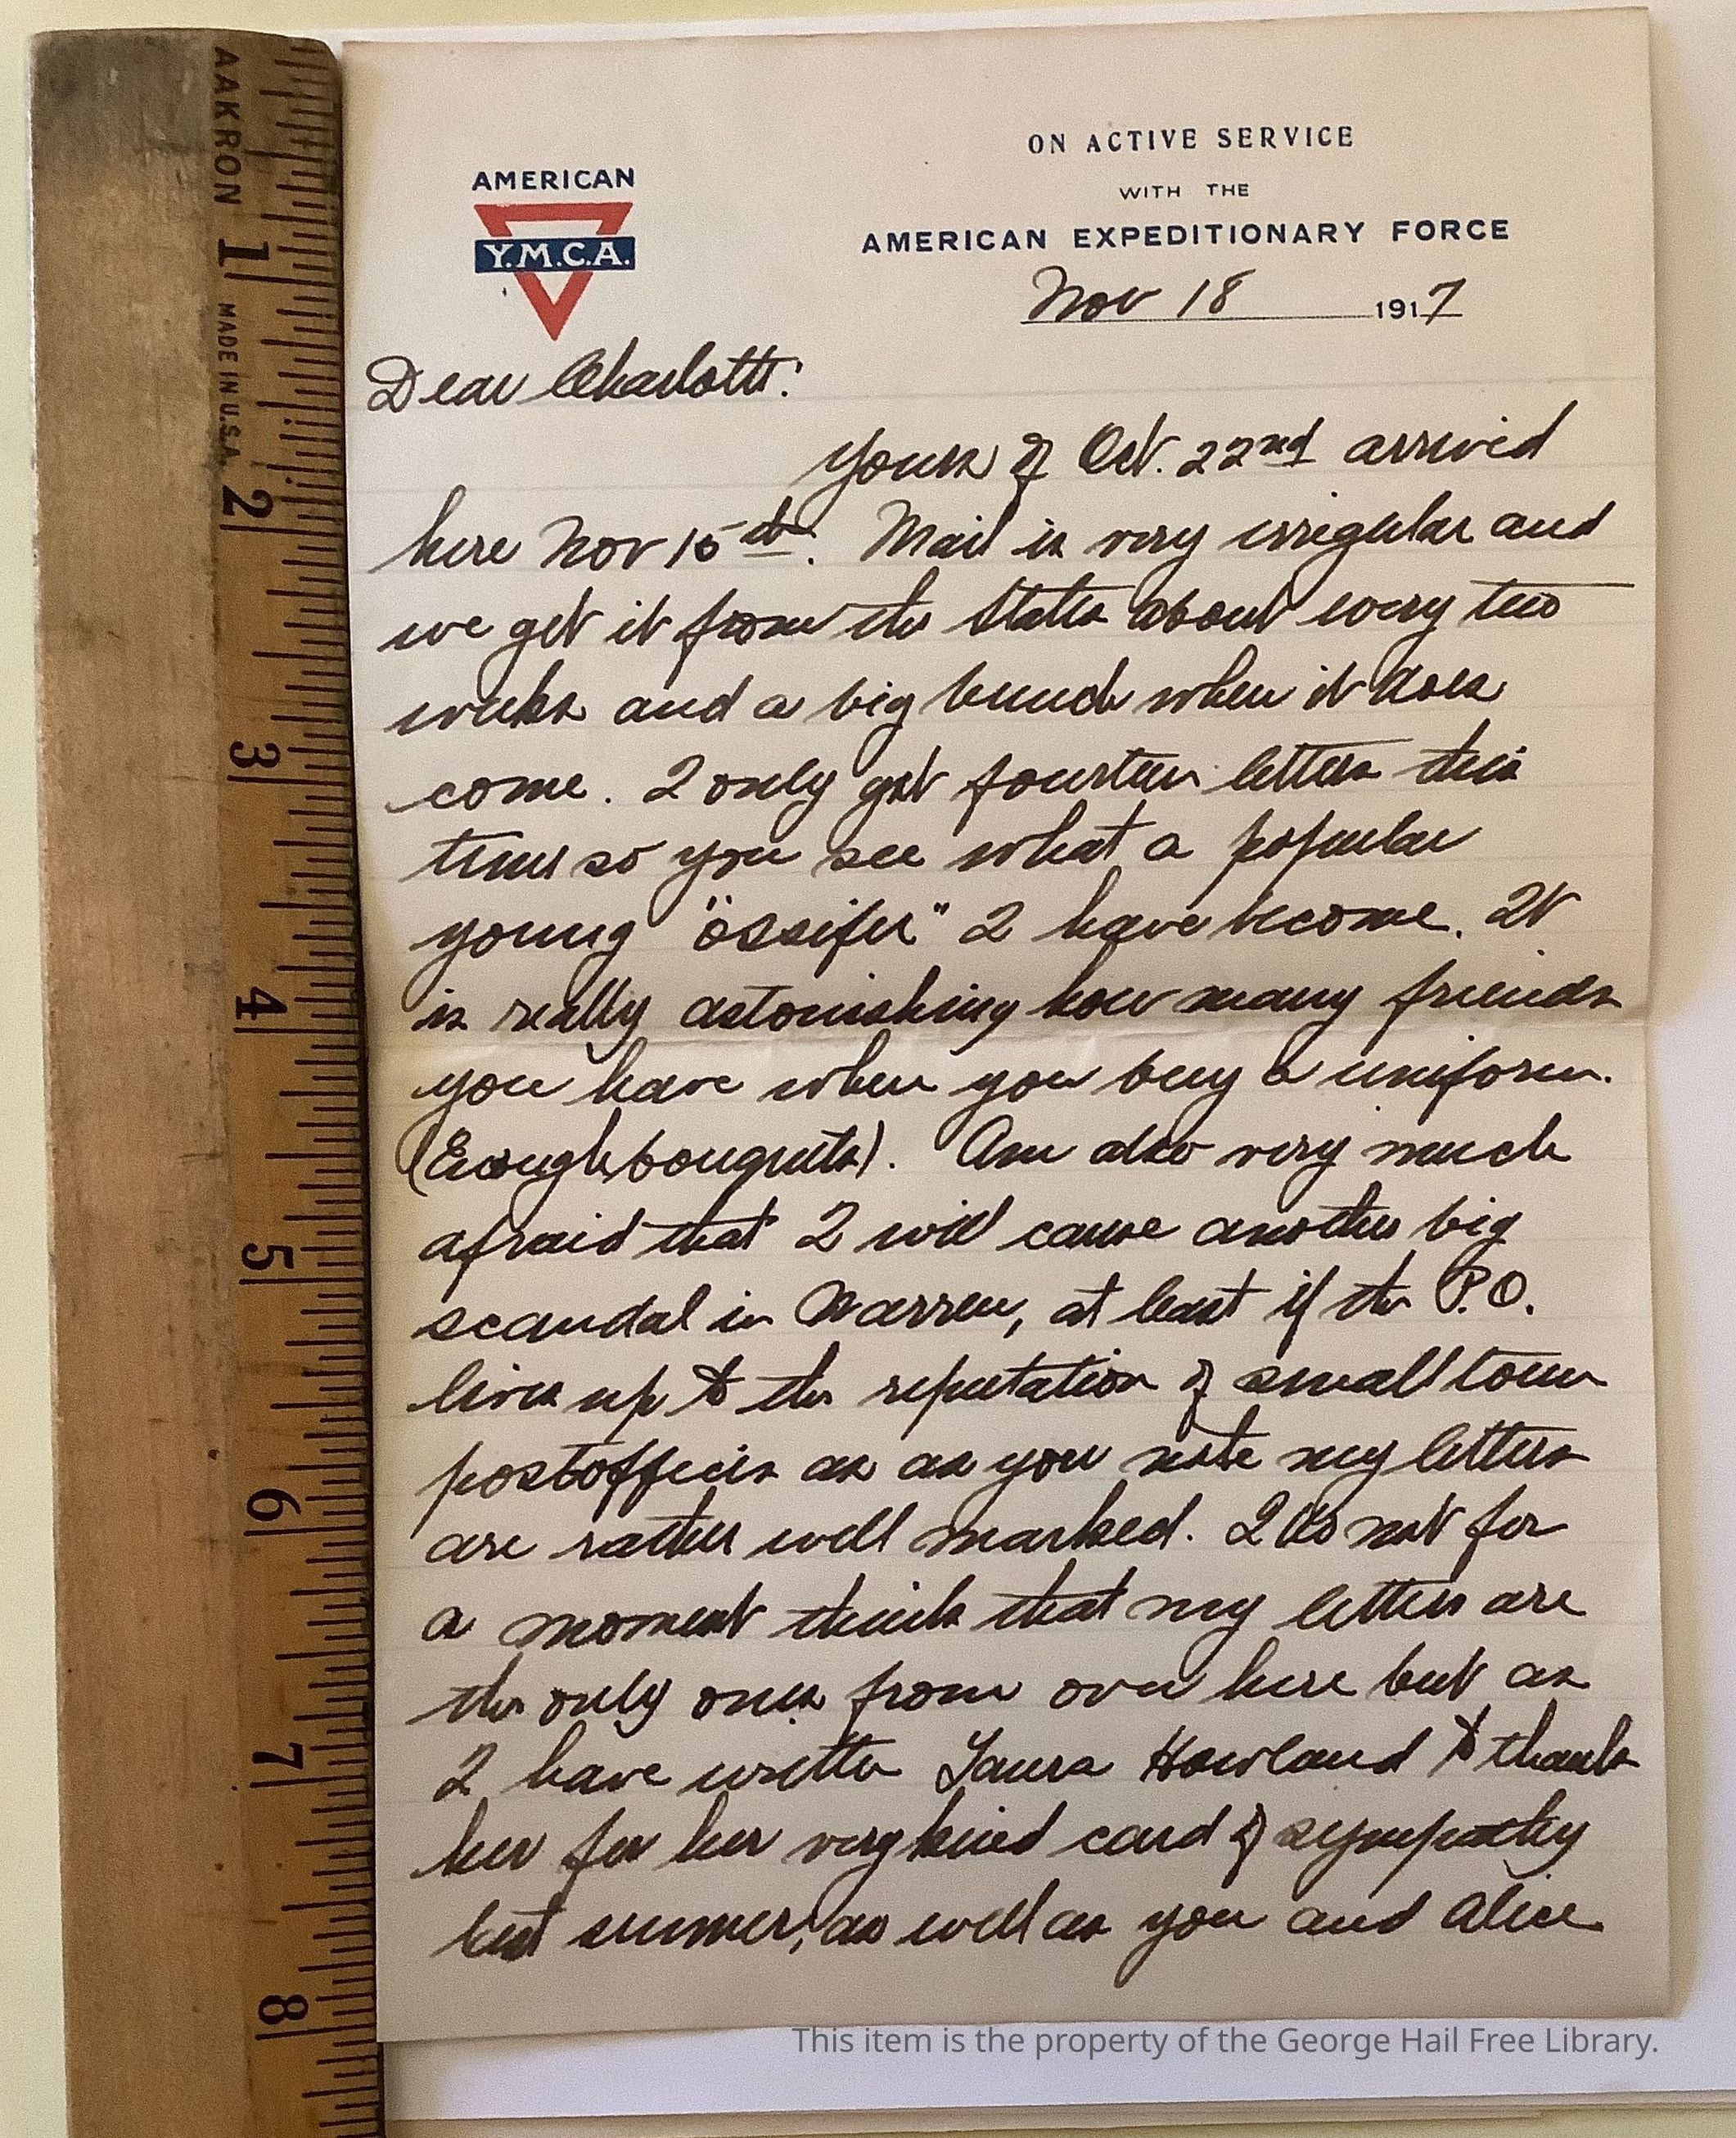 AAKRON
MADE IN U.S.A.
1
2
3
4
5
6
7
8
AMERICAN
Y.M.C.A.
ON ACTIVE SERVICE
WITH THE
AMERICAN EXPEDITIONARY FORCE
Nov 18 1917
Dear Charlotte:
Yours of Oct. 22nd arrived
here Nov 15th. Mail is very irregular and
we get it from the States about every two
weeks and a big bunch when it does
come. I only got fourteen letters this
time so you see what a popular
young "ossifer" I have become. It
is really astonishing how many friends
you have when you buy a uniform.
(Enough bouquets). Am also very much
afraid that I will cause another big
scandal in Warren, at least if the P.O.
lives up to the reputation of small town
postoffices as as you note my letters
are rather well marked. I do not for
a moment think that my letters are
the only ones from over here but as
I have written Laura Howland to thank
her for her very kind card of sympathy
last summer, as well as you and Alice
This item is the property of the George Hail Free Library.